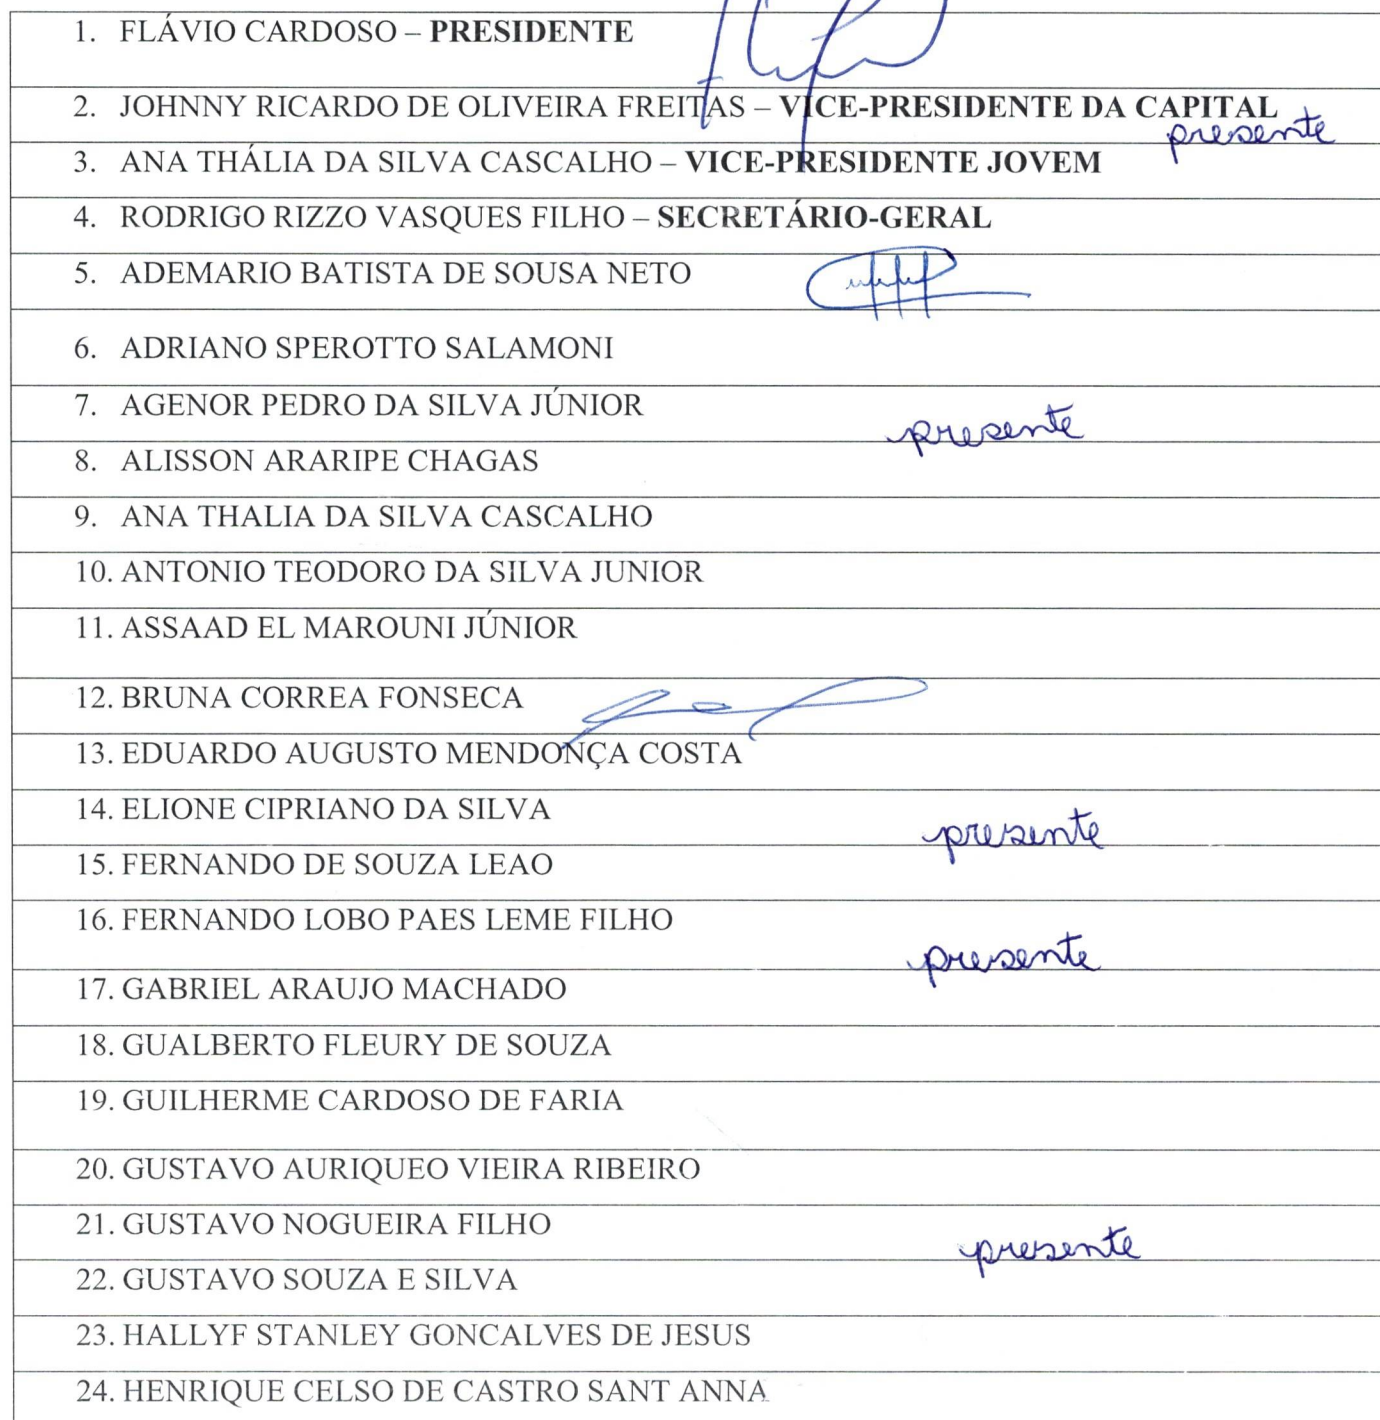 1. FLÁVIO CARDOSO – PRESIDENTE
2. JOHNNY RICARDO DE OLIVEIRA FREITAS – VICE-PRESIDENTE DA CAPITAL
presente
3. ANA THÁLIA DA SILVA CASCALHO – VICE-PRESIDENTE JOVEM
4. RODRIGO RIZZO VASQUES FILHO – SECRETÁRIO-GERAL
5. ADEMARIO BATISTA DE SOUSA NETO
6. ADRIANO SPEROTTO SALAMONI
7. AGENOR PEDRO DA SILVA JÚNIOR
presente
8. ALISSON ARARIPE CHAGAS
9. ANA THALIA DA SILVA CASCALHO
10. ANTONIO TEODORO DA SILVA JUNIOR
11. ASSAAD EL MAROUNI JÚNIOR
12. BRUNA CORREA FONSECA
13. EDUARDO AUGUSTO MENDONÇA COSTA
14. ELIONE CIPRIANO DA SILVA
presente
15. FERNANDO DE SOUZA LEAO
16. FERNANDO LOBO PAES LEME FILHO
presente
17. GABRIEL ARAUJO MACHADO
18. GUALBERTO FLEURY DE SOUZA
19. GUILHERME CARDOSO DE FARIA
20. GUSTAVO AURIQUEO VIEIRA RIBEIRO
21. GUSTAVO NOGUEIRA FILHO
presente
22. GUSTAVO SOUZA E SILVA
23. HALLYF STANLEY GONCALVES DE JESUS
24. HENRIQUE CELSO DE CASTRO SANT ANNA